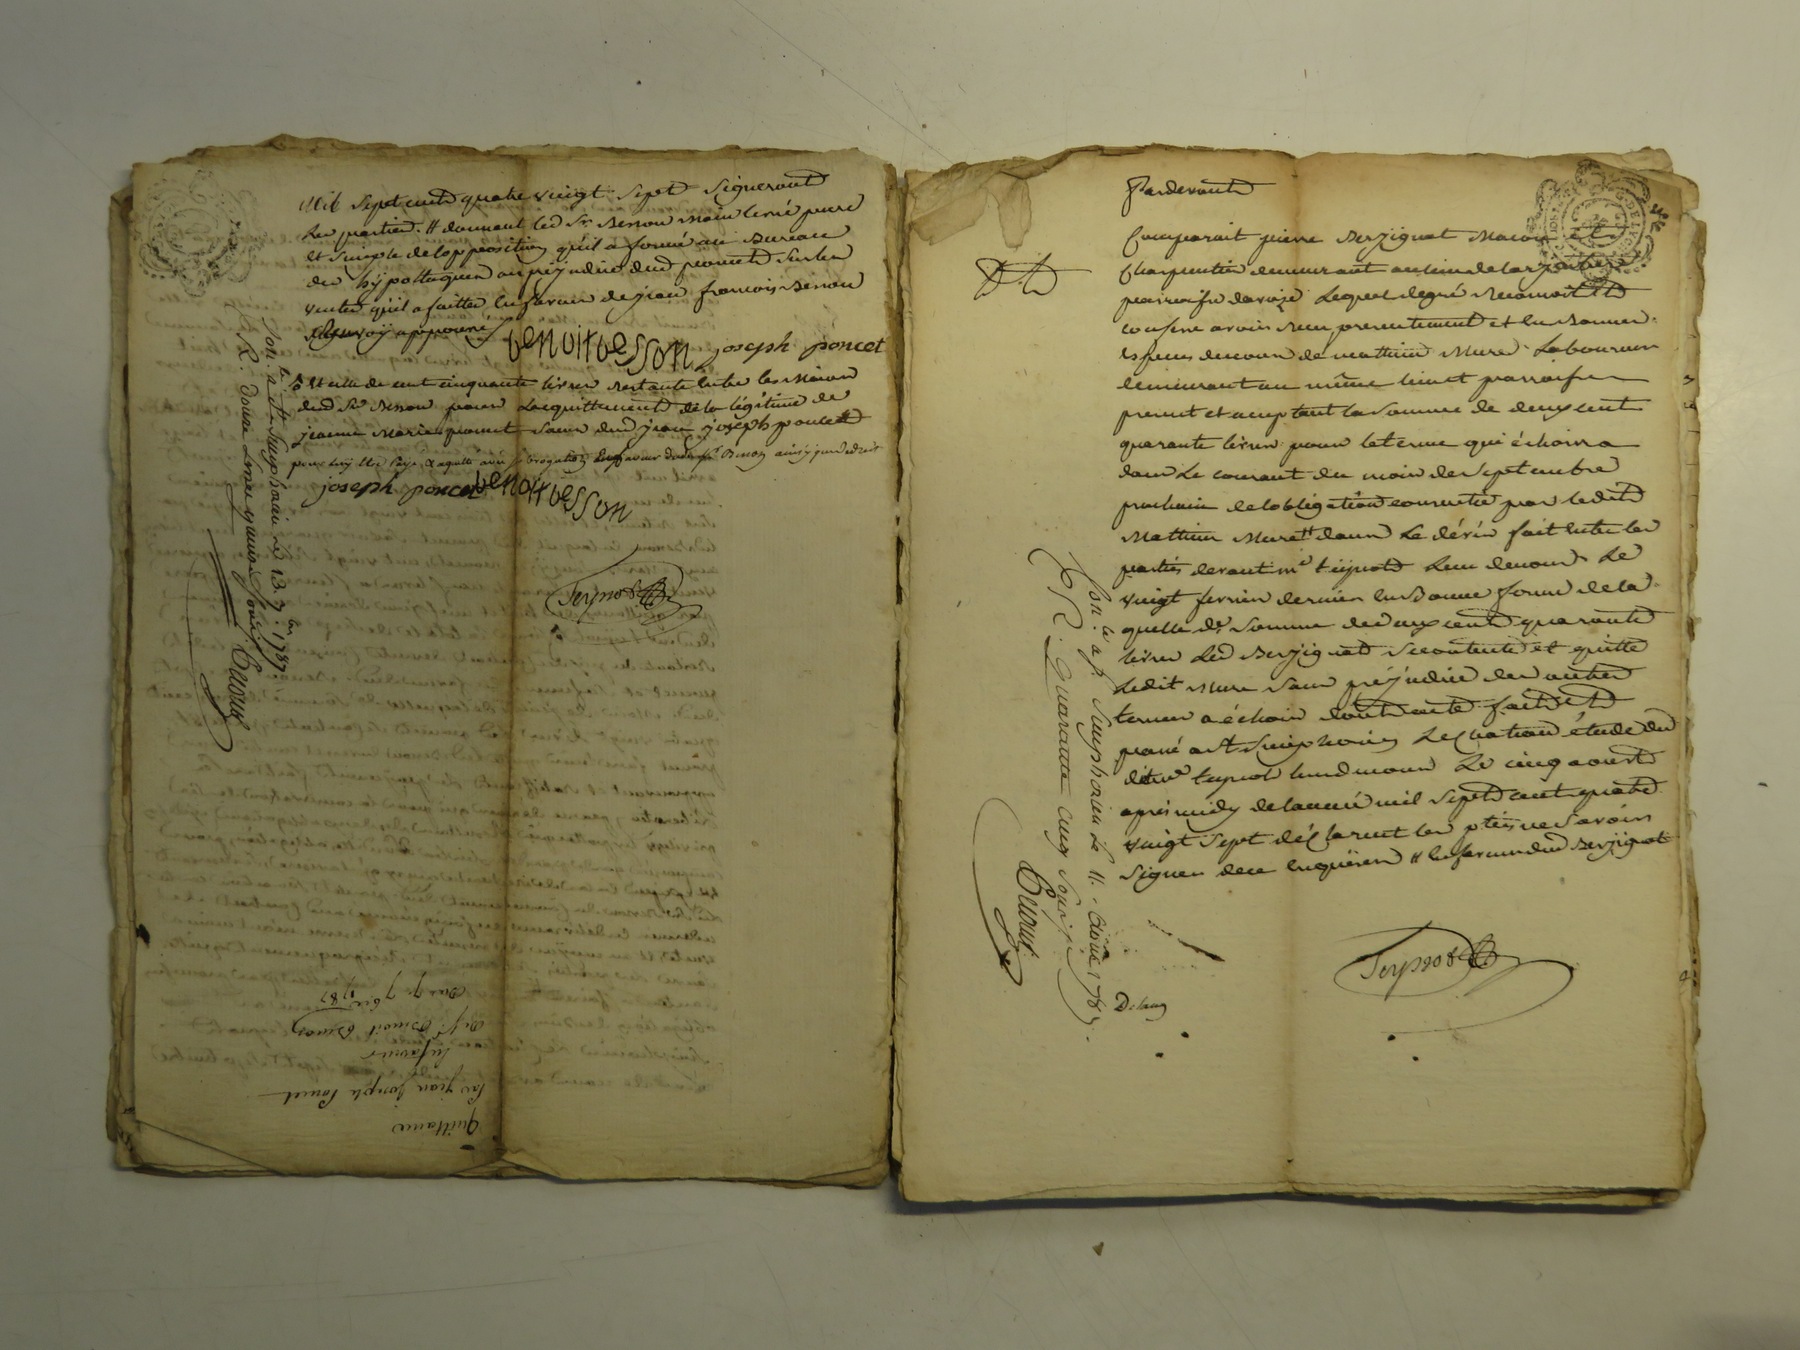 Mil sept cents quatre vingt sept signeront
Les parties. # donnant led Sr. Besson main levée pure
et simple de lopposition qu'il a formé au Bureau
des hÿpotteques au préjudice dud poncet sur les
ventes qu'il a faittes en faveur de jean francois Besson
Renvoÿ approuvé
benoit besson joseph poncet
& celle de cent cinquante livres restante entre les Mains
dud Sr. Besson pour Lacquittement de la légitime de
jeanne Marie poncet sœur dud jean joseph poncet
joseph poncet benoit besson
Teynot
Con. lé à St. Simphorien le 13. 7.bre 1787
R. douze livres quinze sous
quittance
par jean joseph Poncet
en faveur
de Sr. Benoit Besson
Du 7. 7bre 1787
Pardevant
Comparait pierre Berzignot Macon et
Charpentier demeurant au lieu de
parroisse daveize Lequel de gré Reconnoit et
confesse avoir Recu presentement et en Bonnes
espèces de cours de mathieu Mure Laboureur
demeurant au même lieu et parroisse
present et acceptant la somme de deux cent
quarante livres pour le terme qui échoira
dans Le courant du mois de septembre
prochain de lobligation consentie par ledit
Mathieu Mure # dans Le dérin fait entre les
parties devant me teynot Leur devoir Le
vingt fevrier dernier en Bonne forme de la
quelle de. somme de deux cent quarante
livres Led Berzignot se contente et quitte
Ledit Mure sans préjudice des autres
termes a échoir dont acte fait et
passé a St Simphorien Le Chateau étude du
dit me teynot lund mours Le cinq aoust
après midy de lannée mil sept cent quatre
vingt sept déclarent les pties ne savoir
signer de ce enquises # en faveur dud Berzignot
Teynot
Con. lé à St. Simphorien le 11. aoust 1787.
R. quarante cinq sous